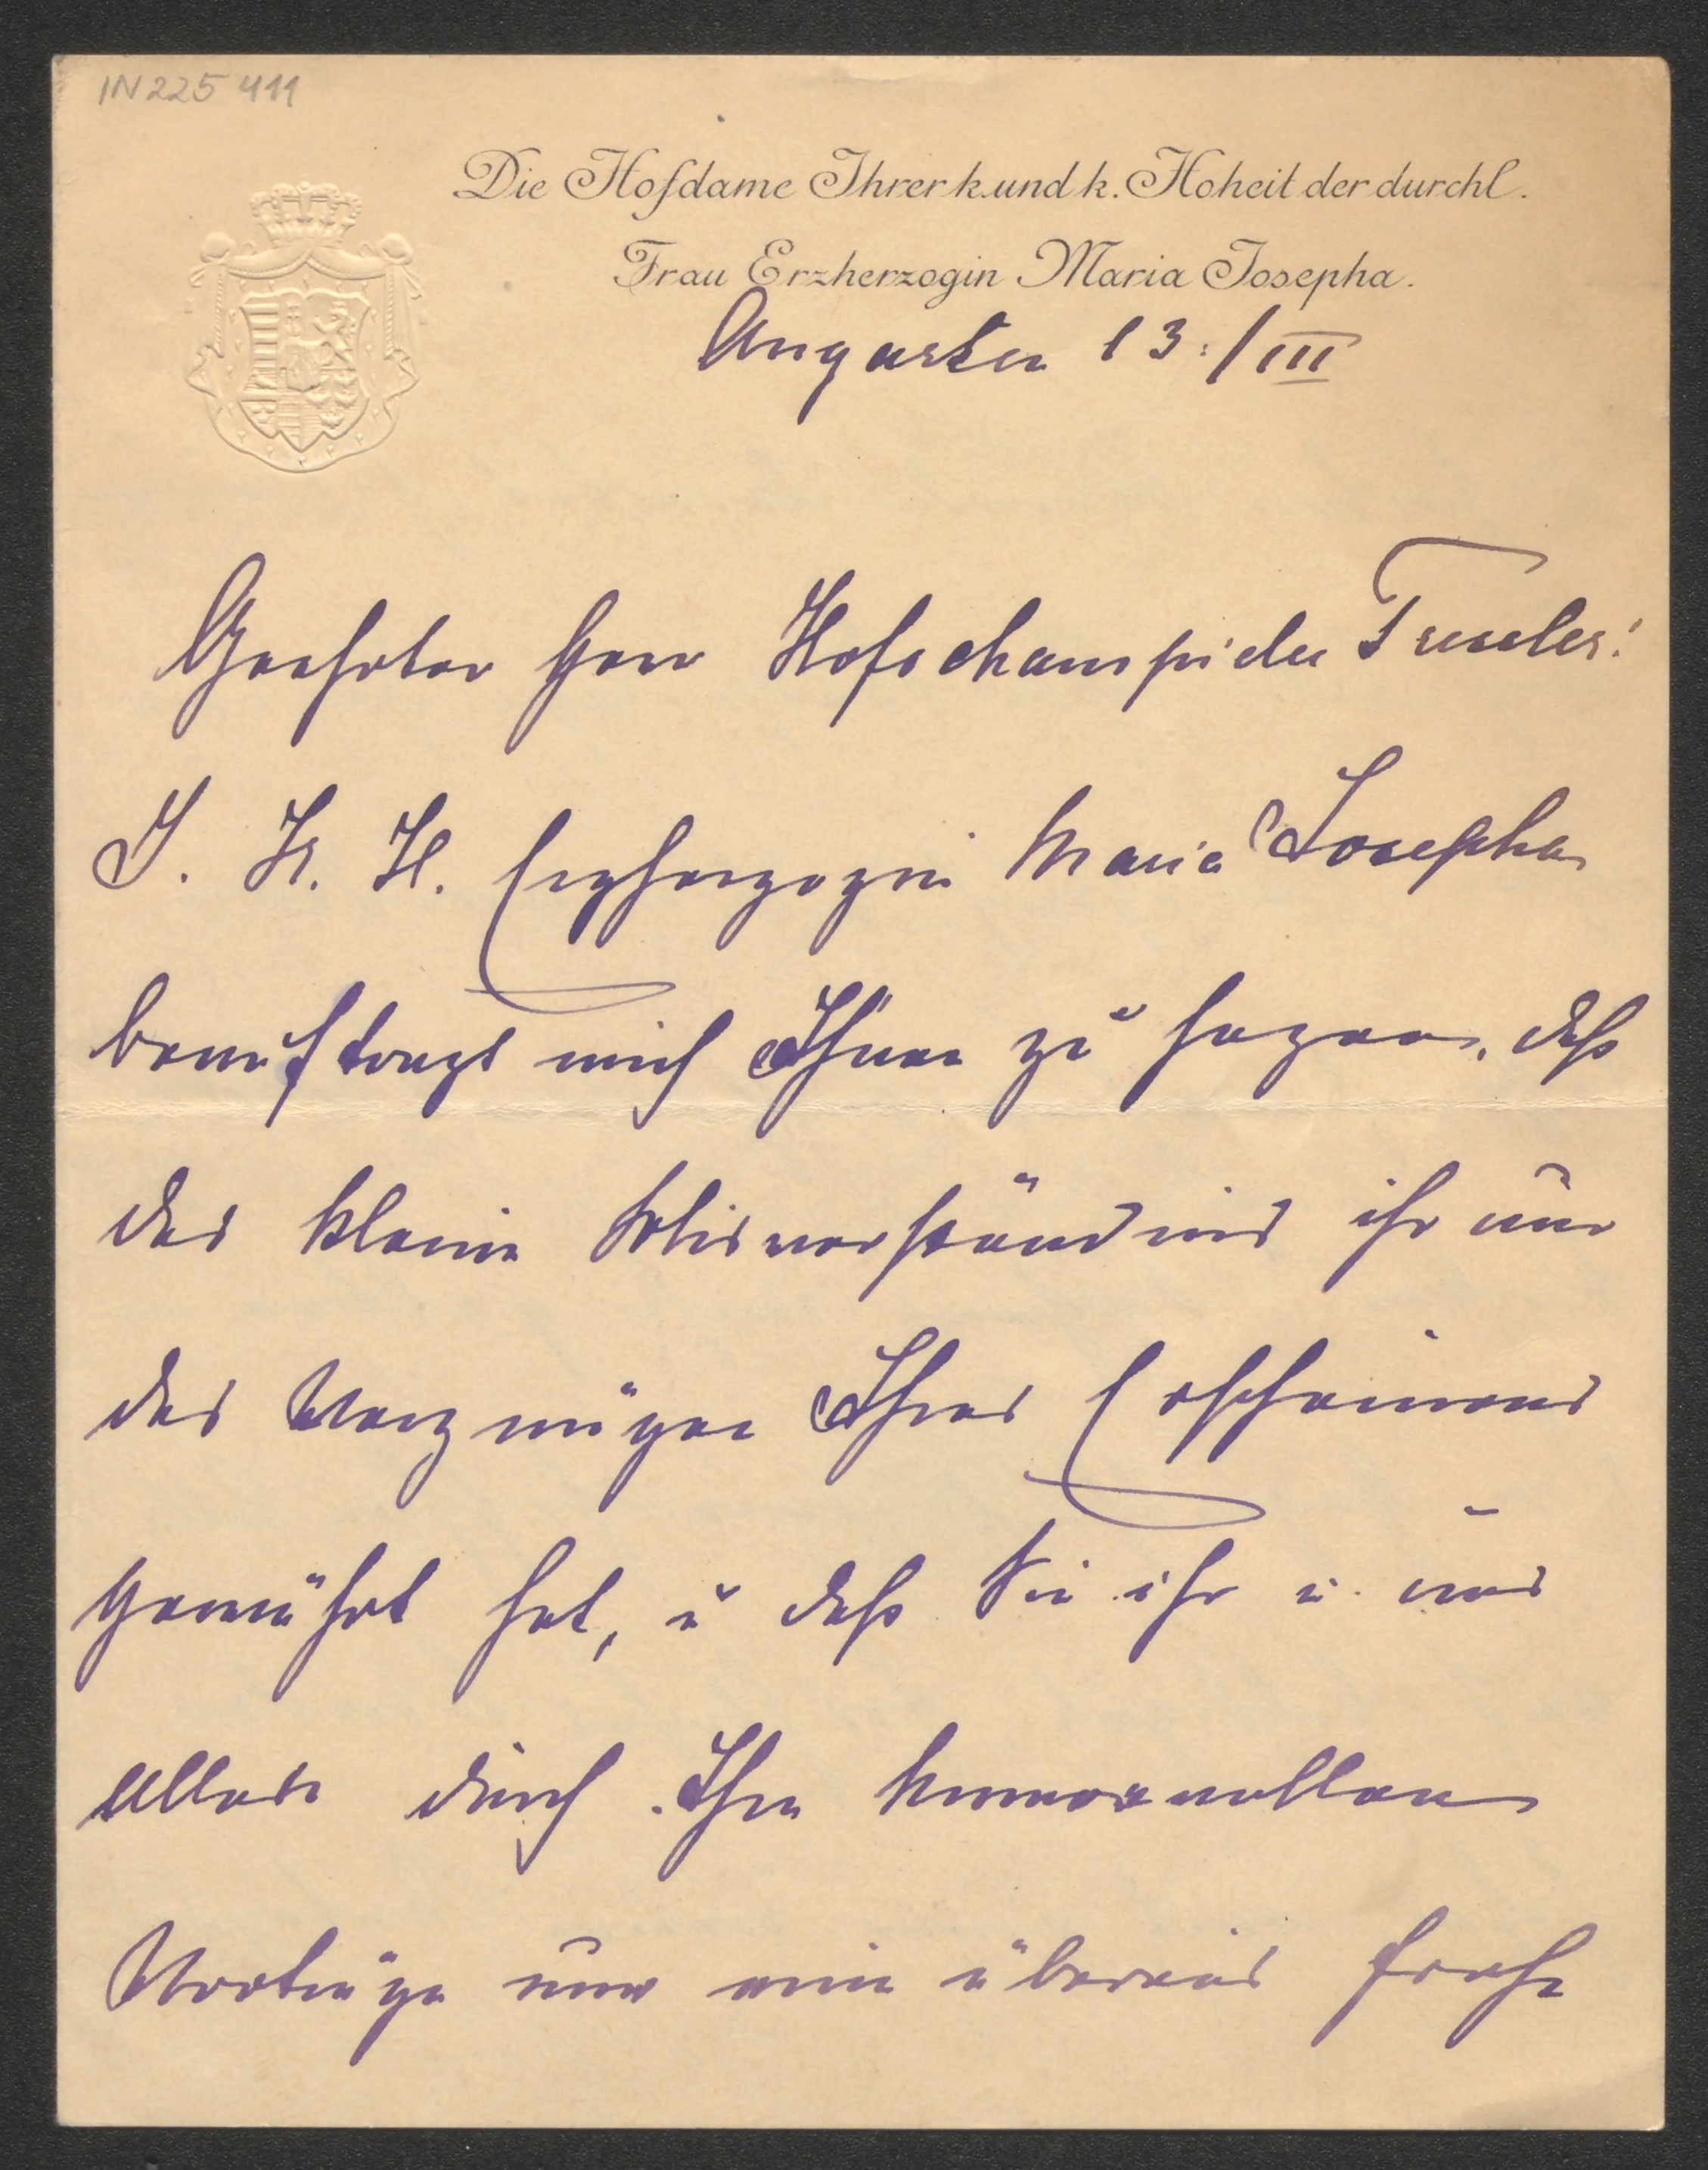 IN 225 411
Die Hofdame Ihrer k. und k. Hoheit der durchl.
Frau Erzherzogin Maria Josepha.
Augarten 13./III
Geehrter Herr Hofschauspieler Tressler!
I. K. H. Erzherzogin Maria Josepha
beauftragt mich Ihnen zu sagen, daß
das kleine Misverständnis ihr nur
das Vergnügen Ihres Erscheinens
gewährt hat, u daß Sie ihr u. uns
allen durch Ihre humorvollen
Vorträge nur eine überaus frohe